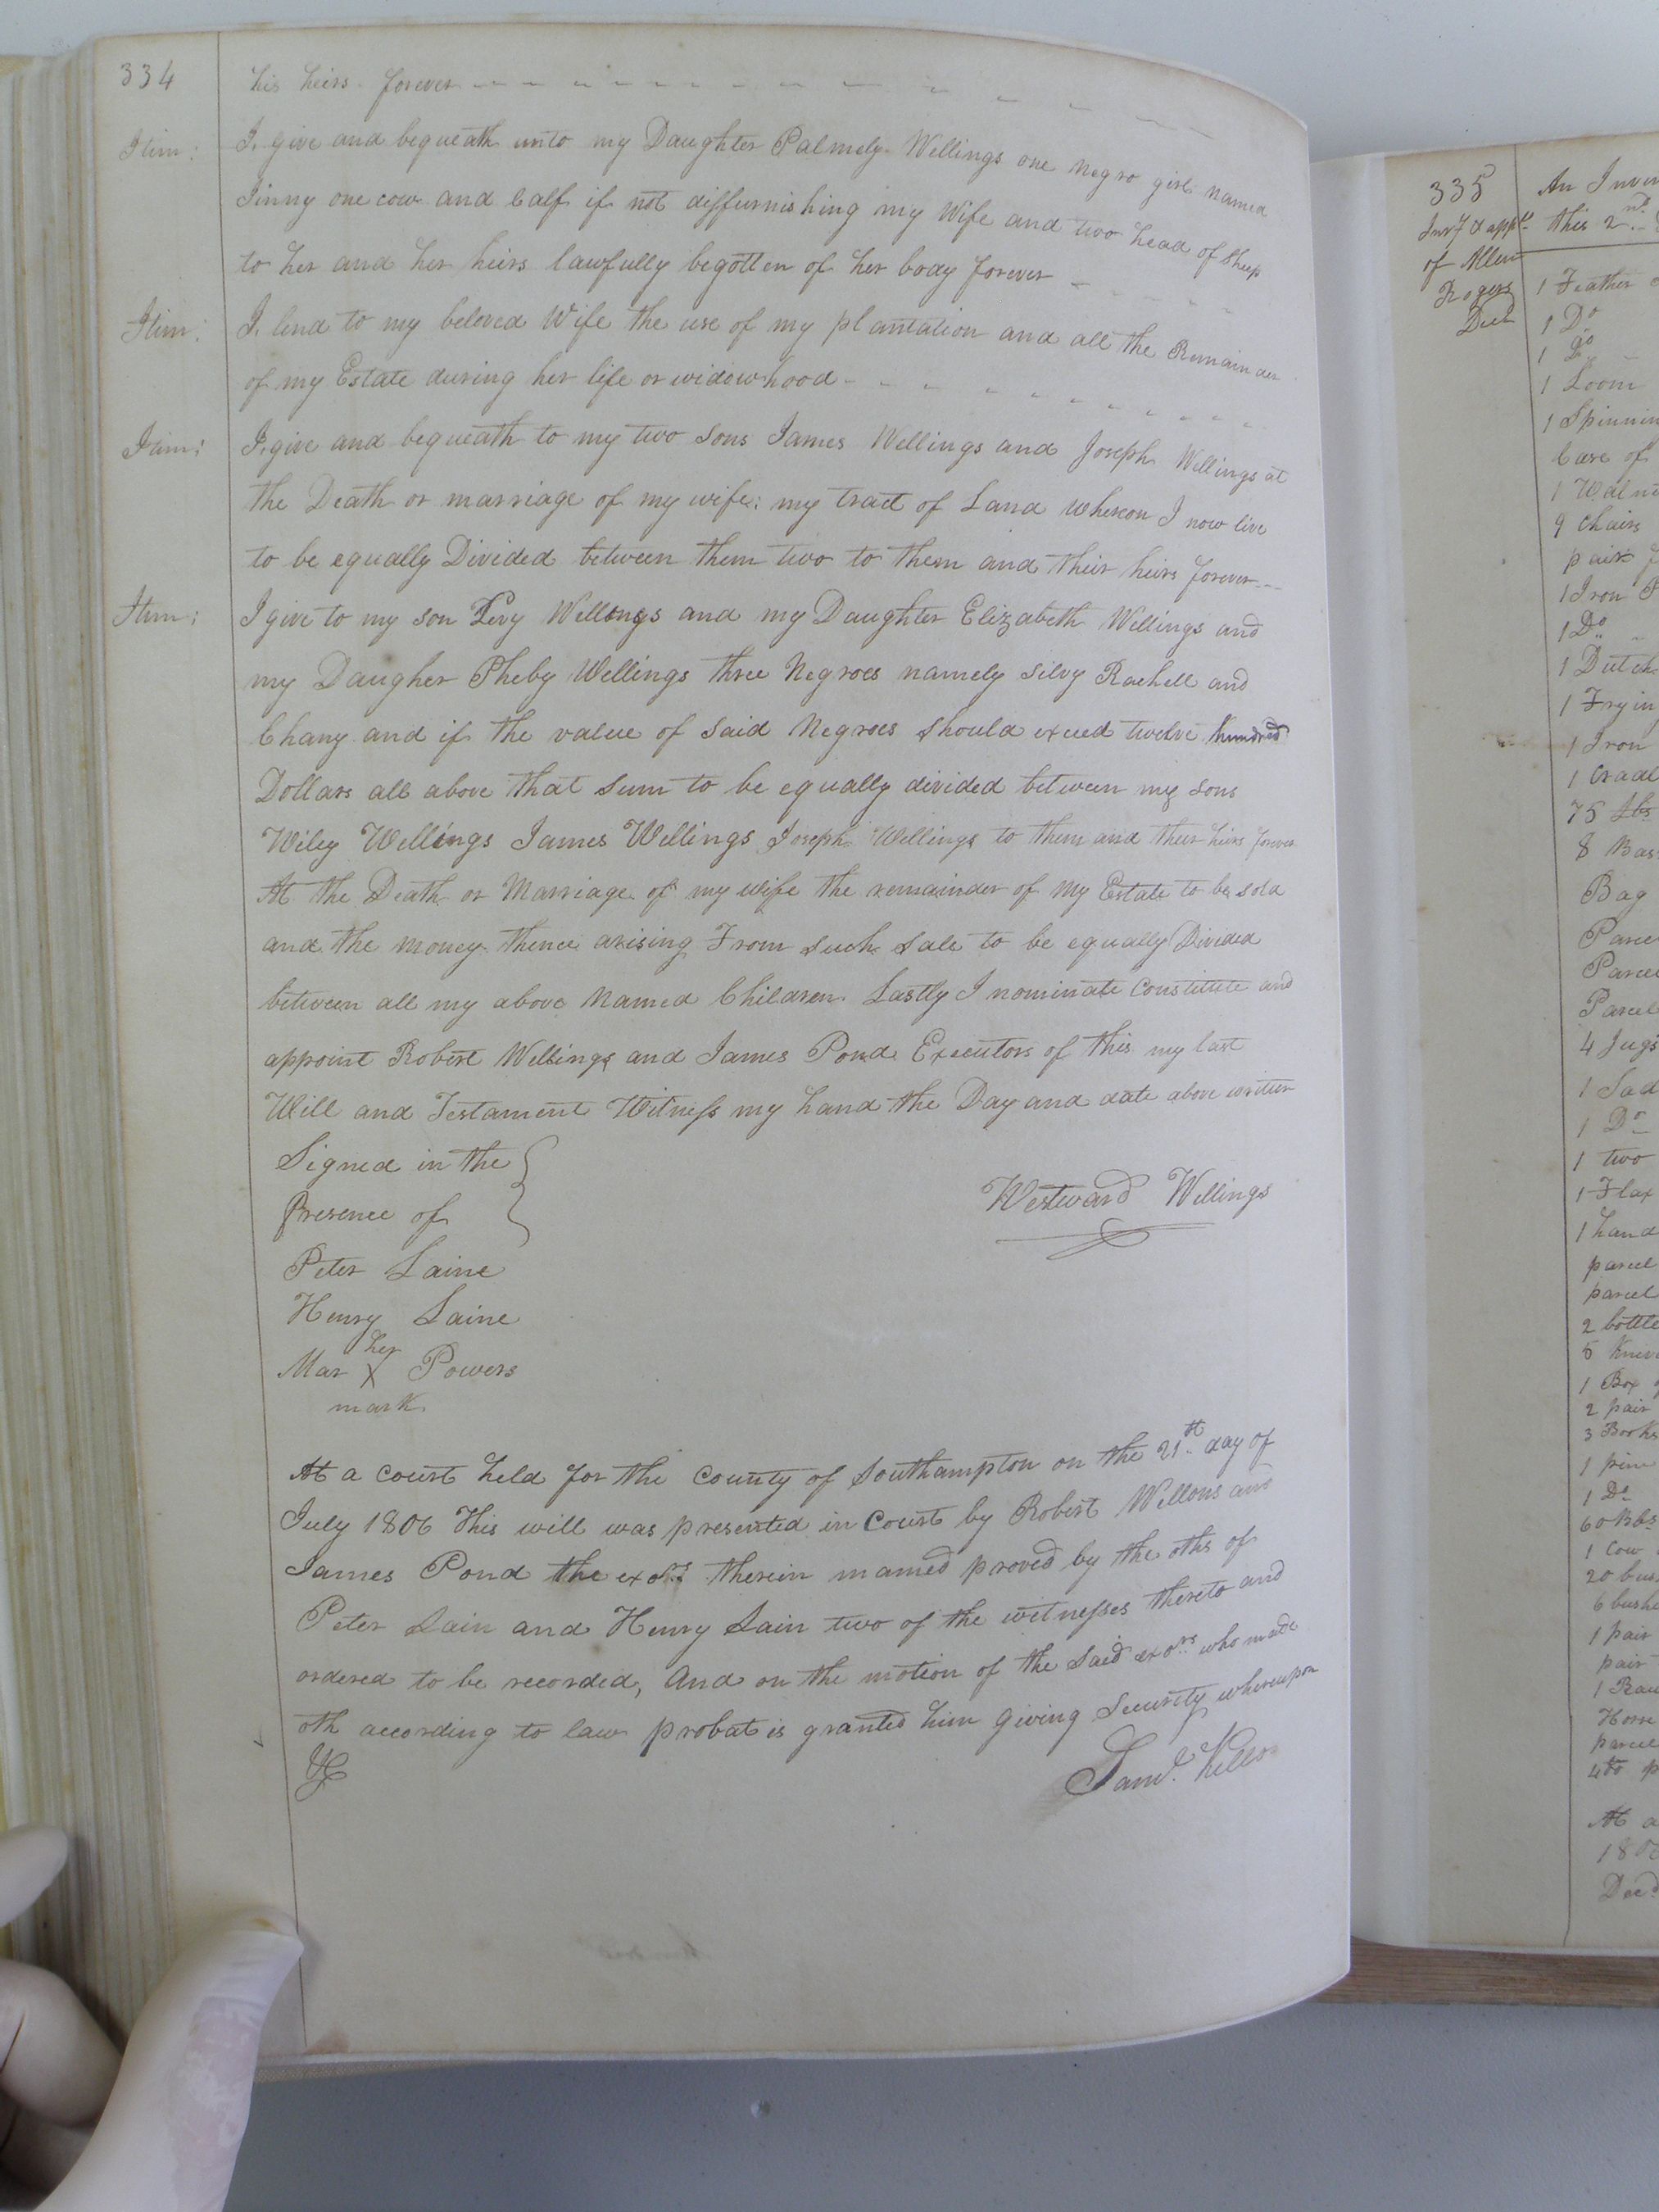 334
his heirs forever
Itim: I give and bequeath unto my Daughter Palmely Wellings one Negro girl named
Jinny one cow and Calf if not diffurnishing my Wife and two head of Sheep
to her and her heirs lawfully begotten of her body forever
Itim: I lend to my beloved Wife the use of my plantation and all the Remainder
of my Estate during her life or widowhood
Itim: I give and bequeath to my two Sons James Wellings and Joseph Wellings at
the Death or marriage of my wife: my tract of Land whereon I now live
to be equally Divided between them two to them and their heirs forever
Itim: I give to my son Levy Wellings and my Daughter Elizabeth Wellings and
my Daugher Pheby Wellings three Negroes namely Silvy Rachell and
Chany and if the value of said Negroes should exceed twelve hundred
Dollars all above that sum to be equally divided between my sons
Wiley Wellings James Wellings Joseph Wellings to them and their heirs forever
At the Death or Marriage of my wife the remainder of my Estate to be sold
and the money thence arising From such Sale to be equally Divided
between all my above Named Children. Lastly I nominate Constitute and
appoint Robert Wellings and James Pond Executors of this my last
Will and Testament Witness my hand the Day and date above written
Signed in the
Presence of
Westward Wellings
Peter Laine
Henry Laine
her
Mar X Powers
mark
At a Court held for the County of Southampton on the 21st day of
July 1806 This will was presented in Court by Robert Wellons and
James Pond the exors therein named proved by the oths of
Peter Lain and Henry Lain two of the witnesses thereto and
ordered to be recorded, And on the motion of the said exors who made
oth according to law probat is granted him giving Security whereupon
Saml. Kello
335
An Inven
Invy & appt
this 2nd
of Allen
Rogers
Decd
1 Feather
1 Do
1 Do
1 Loom
1 Spinnin
Care of
1 Waln
9 Chairs
pair
1 Iron P
1 Do
1 Dutch
1 Fryin
1 Iron
1 Cradl
75 lbs
8 Bas
Bag
Parce
Parcel
Parcel
4 Jugs
1 Sad
1 Do
1 two
1 Flax
1 hand
parcel
parcel
2 bottle
5 Knive
1 Box
2 pair
3 Books
1 pine
1 Do
60 Bbs
1 Cow
20 bus
6 bushe
1 pair
pair
1 Bau
Horse
parcel
At a
180
Decd